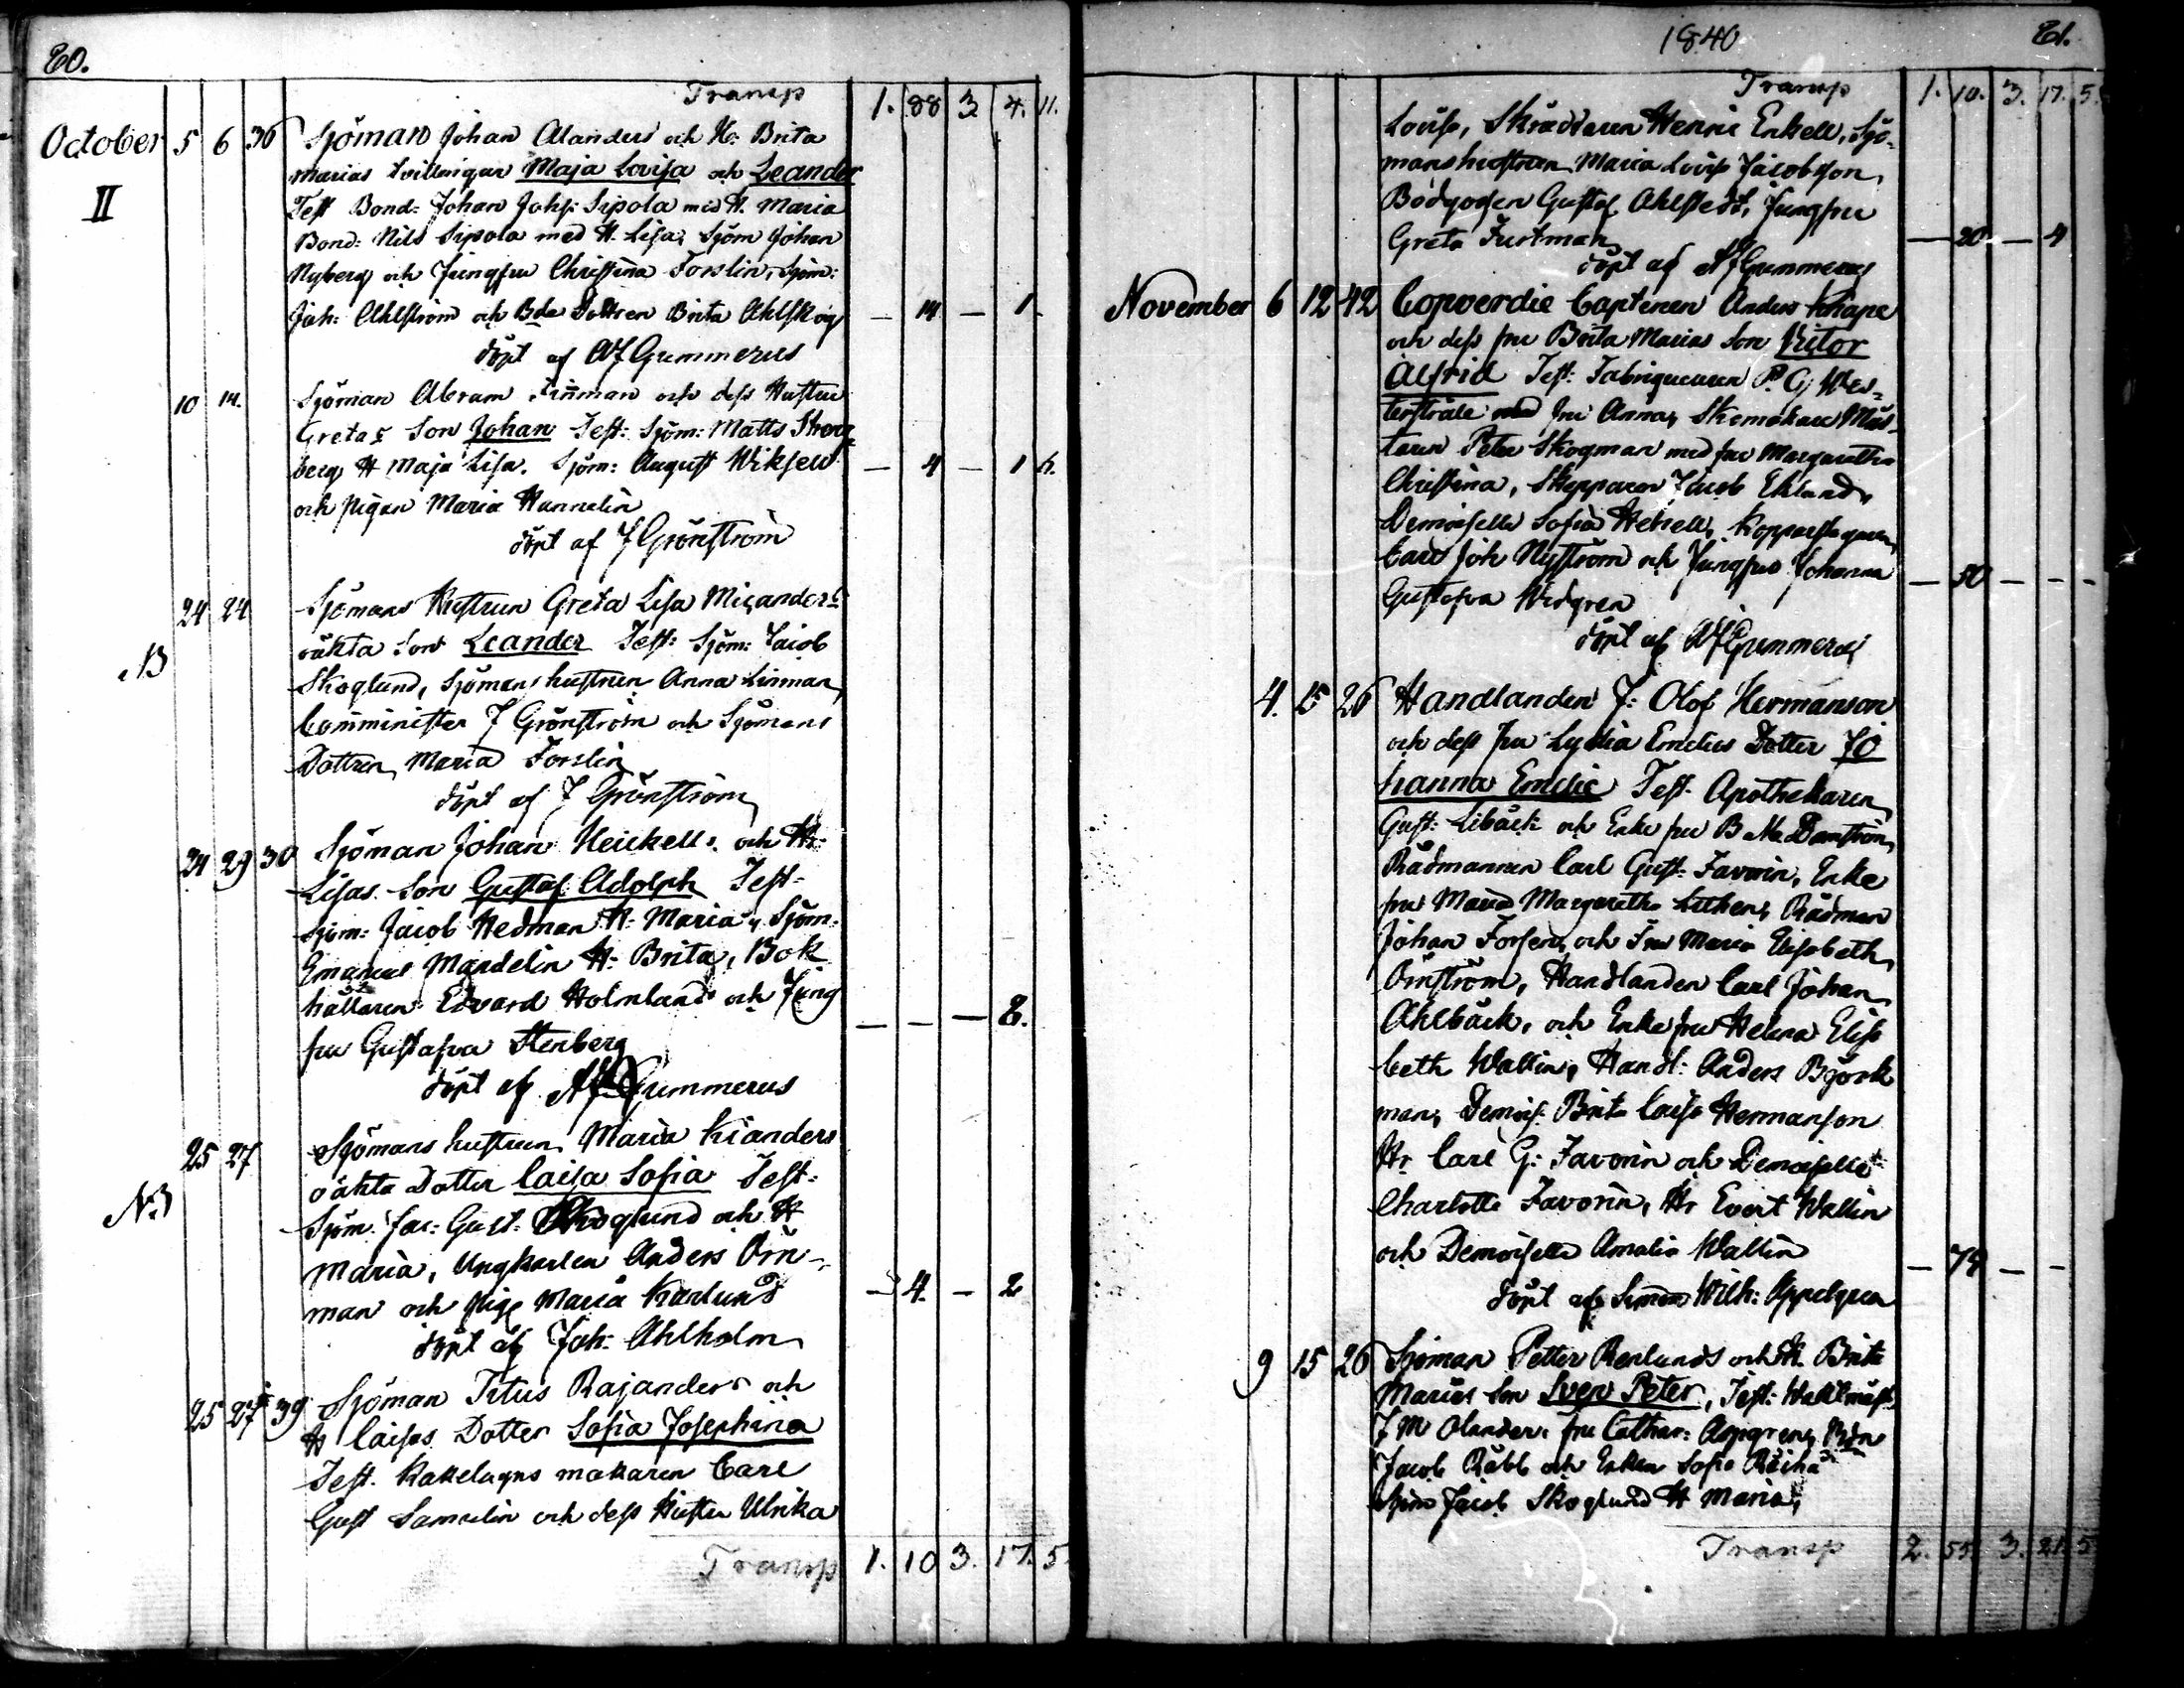 80.
Transp 1. 88 3 4. 11.
October 5 6 36 Sjöman Johan Alanders och H: Brita
II
marias tvillingar Maja Lovisa och Leander
Test Bond: Johan Johs: Sipola med H. Maria
Bond: Nils Sipola med H. Lisa, Sjöm Johan
Nyberg och Jungfru Christina Forslin, Sjöm:
Joh: Ahlström och Bde Dottren Brita Ahlskog — 14 — 1
döpt af AfGummerus
10 14. Sjöman Abram Linman och dess Hustru
Gretas Son Johan Test: Sjöm: Matts
berg H Maja Lisa. Sjöm: August Wiksell — 4 — 1 6.
och pigan Maria Hannelin
döpt af J Grönström
24 24 Sjömans Hustrun Greta Lisa Micanders
oäkta Son Leander Test: Sjöm: Jacob
Skoglund, Sjömans hustrun Anna Linman
Comminister J Grönström och Sjömans
Dottren Maria Forslin
döpt af J Grönström
24 29 30 Sjöman Johan Heickells och H:
Lisas Son Gustaf Adolph Test:
Sjöm: Jacob Hedman H: Maria, Sjöm:
Emanuel Mardelin H: Brita, Bok
hållaren Edvard Holmlund och Jung
fru Gustafva Stenberg — — — 8.
döpt af Gummerus
25 27 Sjömans hustrun Maria Kianders
oäkta Dotter Caisa Sofia Test:
Sjöm: Jac: Gust: Skoglund och H
Maria, Ungkarlen Anders Öm-
man och piga Maria Karlund — 4. — 2
döpt af Joh: Ahlholm
25 27 39 Sjöman Titus Rajanders och
H Caisas Dotter Sofia Josephina
Test. Kakelugns makaren Carl
Gust Samulin och dess Hustru Ulrika
Transp 1. 10 3. 17. 5
1840 81.
Transp 1. 10. 3. 17. 5.
Lovisa, Skräddaren Henric Enkell, Sjö-
manshustrun Maria Lovisa Jacobsson,
Bodgossen Gustaf Ahlstedt, Jungfru
Greta Furtman — 20 — 4
döpt af AfGummerus
November 6 12 42 Copverdie Captenen Anders Knape
och dess fru Brita Marias Son Victor
Alfrid Test: Fabriqueuren P. G. Wes-
terstråle med fru Anna, Mäs-
taren Peter Skogman med fru Margaretha
Christina, Skepparen Jacob Eklund,
Demoiselle Sofia, Kopparslagaren
Carl Joh Nyström och Jungfru Johanna — 50 — — -
Gustafva Widgren
döpt af AfGummerus
4. 15 26 Handlanden J: Olof Hermanson
och dess fru Lydia Emelies Dotter Jo
hanna Emelie Test. Apothekaren
Gust: Libäck och Enke fru B Ma Damström,
Rådmannen Carl Gust: Favorin, Enke
fru Maria Margaretha Lithen, Rådman
Johan Forsen, och Fru Maria Elisabeth
Örnström, Handlanden Carl Johan
Ahlbäck, och Enke fru Helena Elisa
beth Wallin, Handl: Anders Björk
man, Demois: Brita Caisa Hermanson
Hr Carl G: Favorin och Demoiselle
Charlotte Favorin, Hr Evert Wallin
och Demoiselle Amalia Wallin — 75 — -
döpt af Simon Wilh: Appelgren
9 15 26 Sjöman Petter Renlunds och H. Brita
Marias Son Sven Peter, Test: Waktmäst:
J M Olander. fru Cathar: Appgren,
Jacob Räbb och Enkan Sofia
Sjöm Jacob Skoglund H Maria,
Transp 2. 55 3. 21. 5